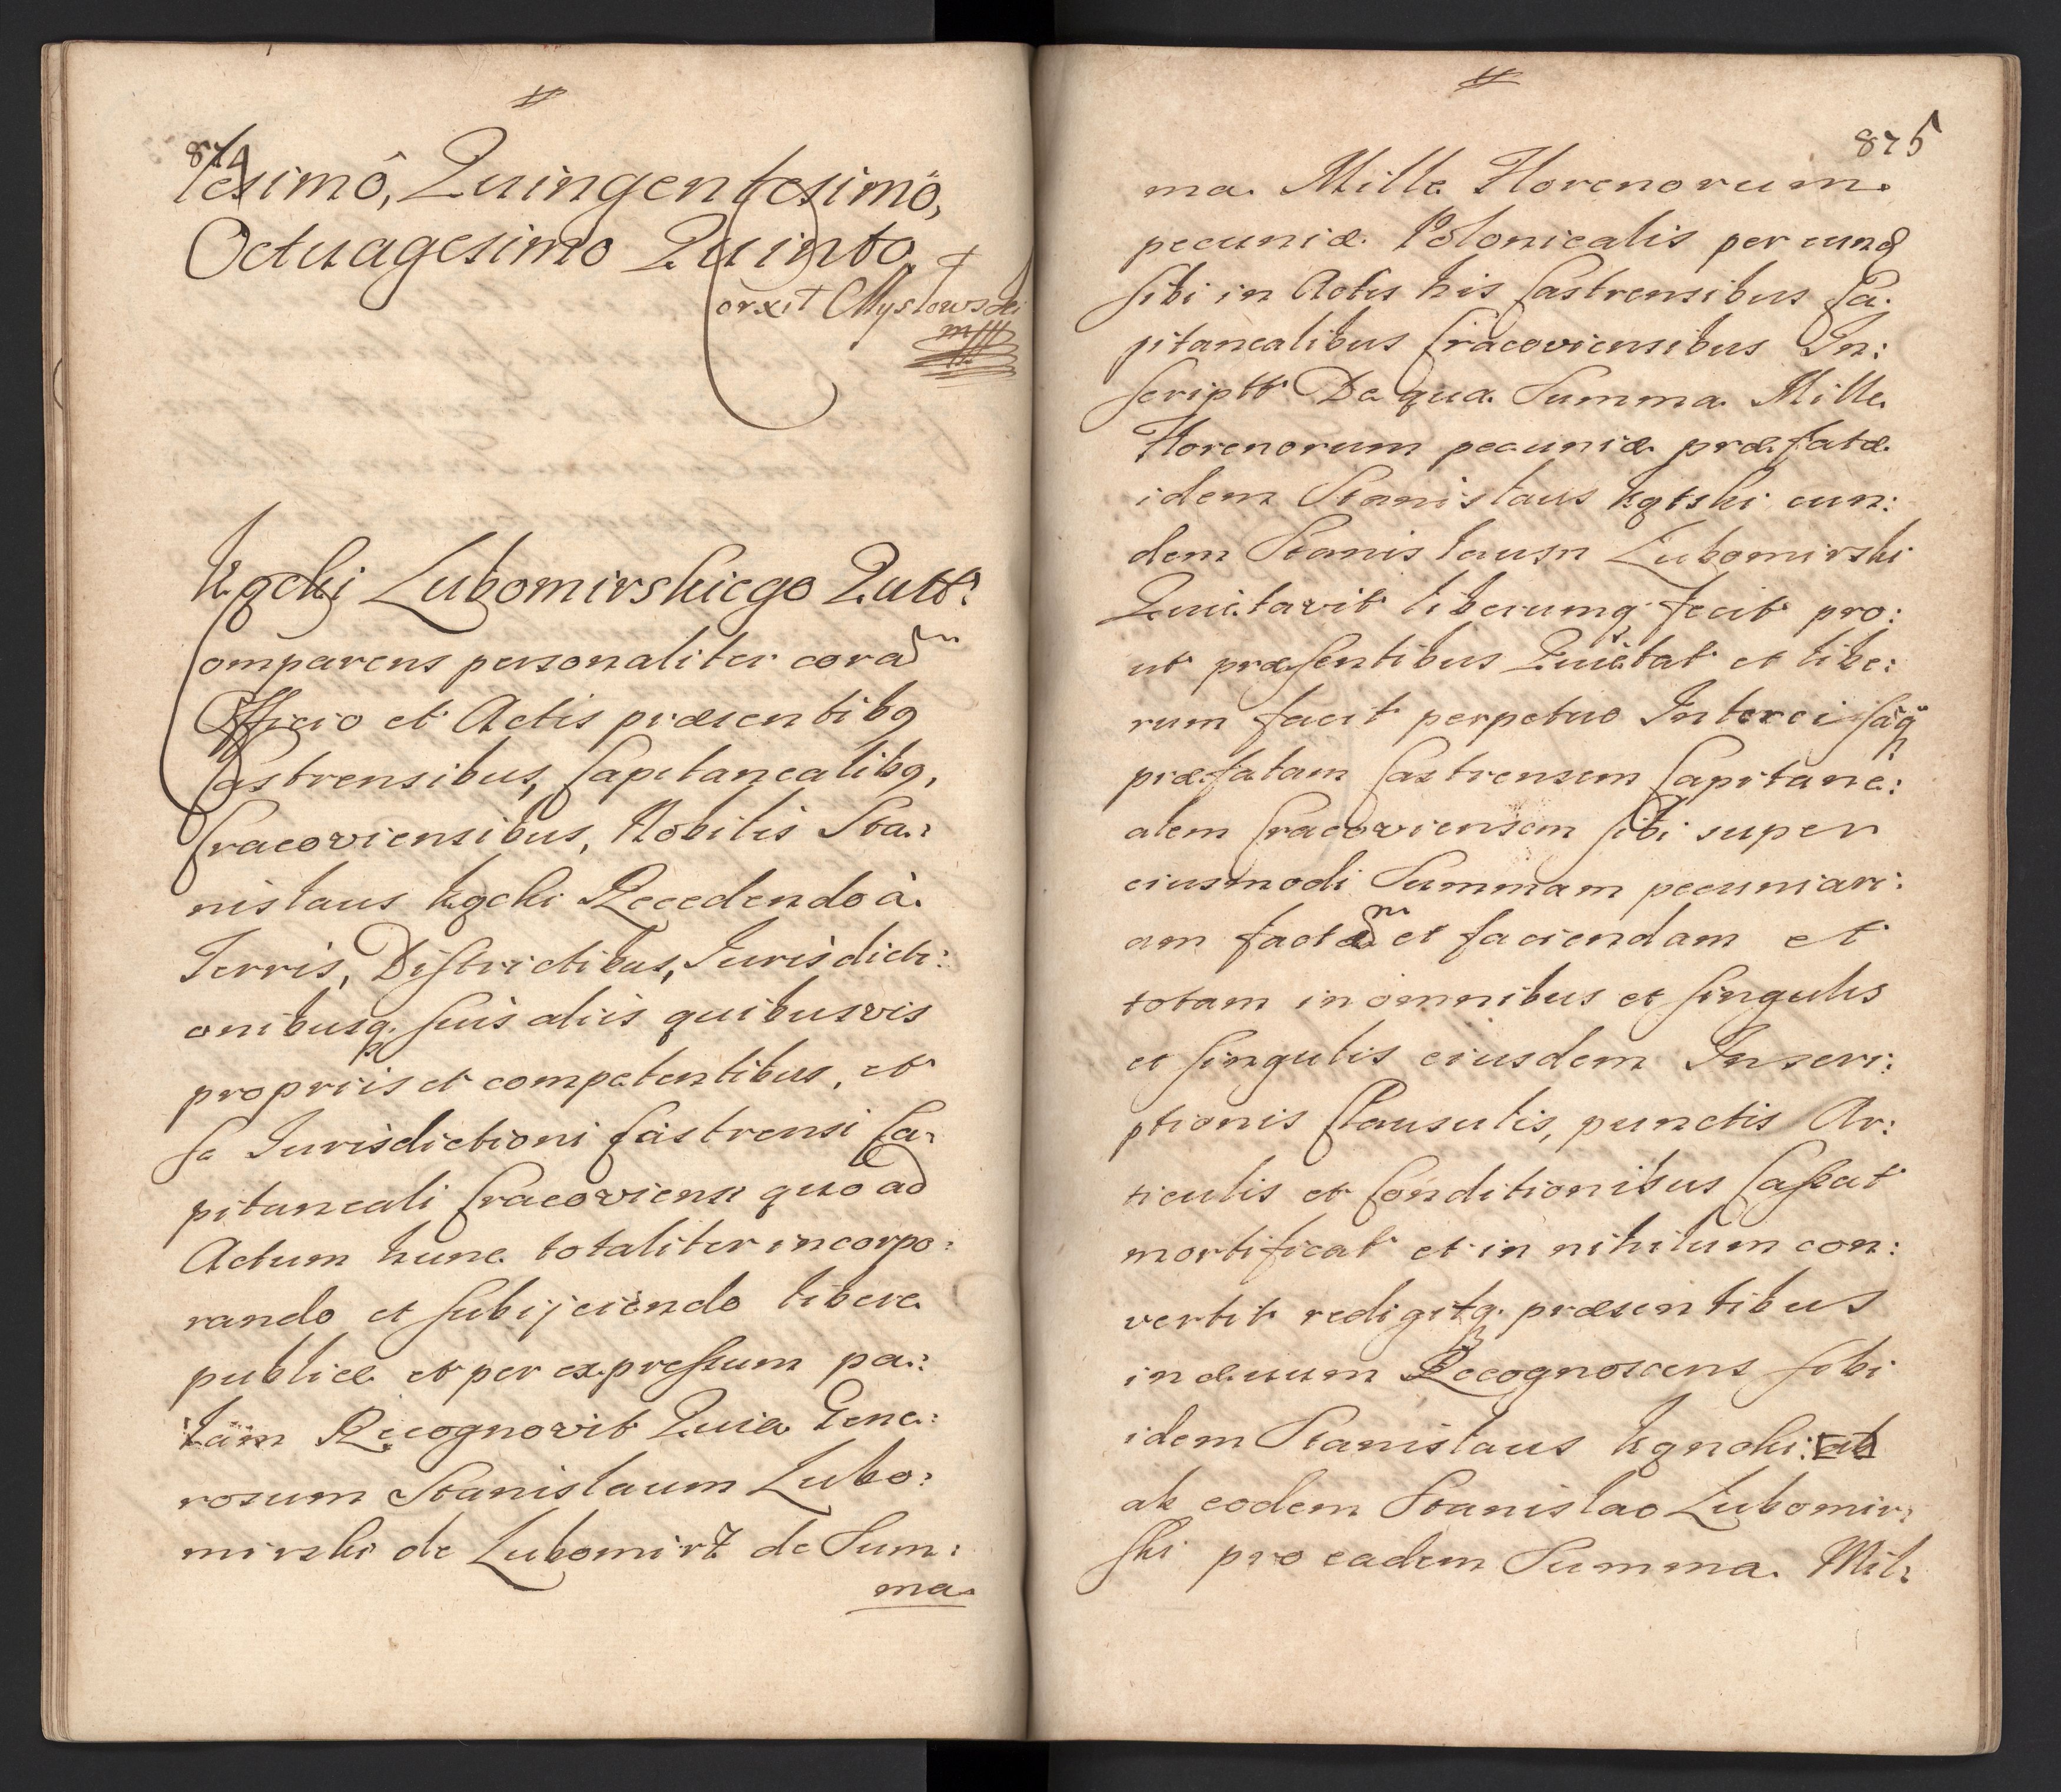 874
lesimô, Quingentesimô,
Octuagesimo Quinto
Corxit Mysłowski
mpp
Kącki Lubomirskiego Quitt:
Comparens personaliter coram
Officio et Actis præsentibq
Castrensibus, Capitanealibq,
Cracoviensibus, Nobilis Sta:
nislaus Kącki Recedendo à
Terris, Districtibus, Jurisdicti:
onibusq. suis aliis quibusvis
propriis et competentibus, et
se Jurisdictioni Castrensi Ca:
pitaneali Cracoviensi quo ad
Actum hunc totaliter incorpo:
rando et subijciendo libere
publicè et per expressum pa:
lam Recognovit Quia Gene:
rosum Stanislaum Lubo:
mirski de Lubomirz de Sum:
ma
875
ma Mille Florenorum
pecuniæ Polonicalis per eunq
sibi in Actis his Castrensibus Ca:
pitanealibus Cracoviensibus In:
scriptt De qua Summa Mille
Florenorum pecuniæ præfatæ
idem Stanislaus Kątski eun:
dem Stanislaum Lubomirski
Quietavit liberumq fecit pro:
ut præsentibus Quietat et libe:
rum facit perpetuo Intercisâq
præfatam Castrensem Capitane:
alem Cracoviensem sibi super
eiusmodi Summam pecuniari:
am factam et faciendam et
totam in omnibus et singulis
et singulis eiusdem Inscri:
ptionis Clausulis, punctis Ar:
ticulis et Conditionibus Cassat
mortificat et in nihilum con:
vertit redigitq. præsentibus
in ævum Recognoscens sibi
idem Stanislaus Kąncki: ab
ab eodem Stanislao Lubomir:
ski pro eadem Summa Mil: